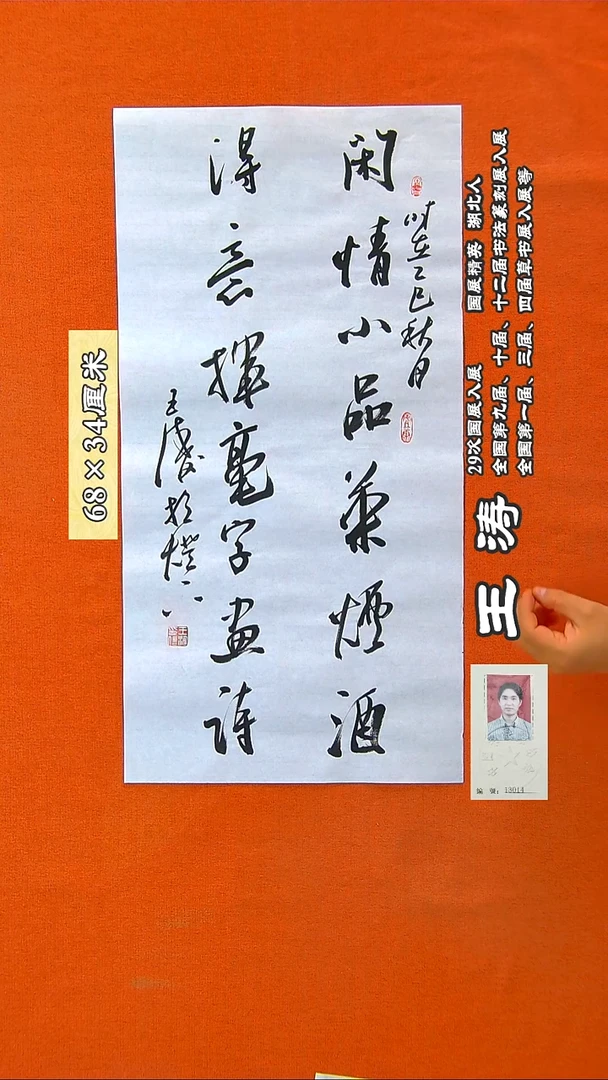 时在乙巳秋月
闲情小品菜烟酒
得意挥毫字画诗
王涛于灯下
68×34厘米
29次国展入展 国展精英 湖北人
全国第九届、十届、十二届书法篆刻展入展
全国第一届、三届、四届草书展入展等
王涛
编号：13014